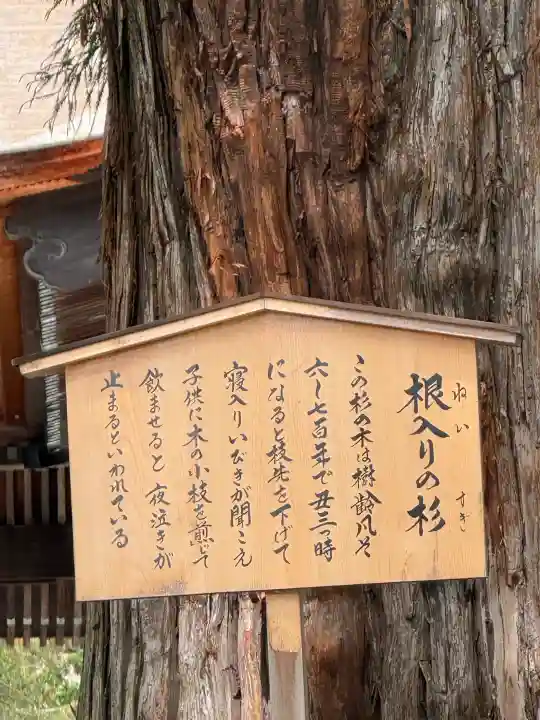 根入りの杉
ねい
すぎ
この杉の木は樹齢凡そ
六〜七百年で丑三つ時
になると枝先を下げて
寝入りいびきが聞こえ
子供に木の小枝を煎じて
飲ませると夜泣きが
止まるといわれている